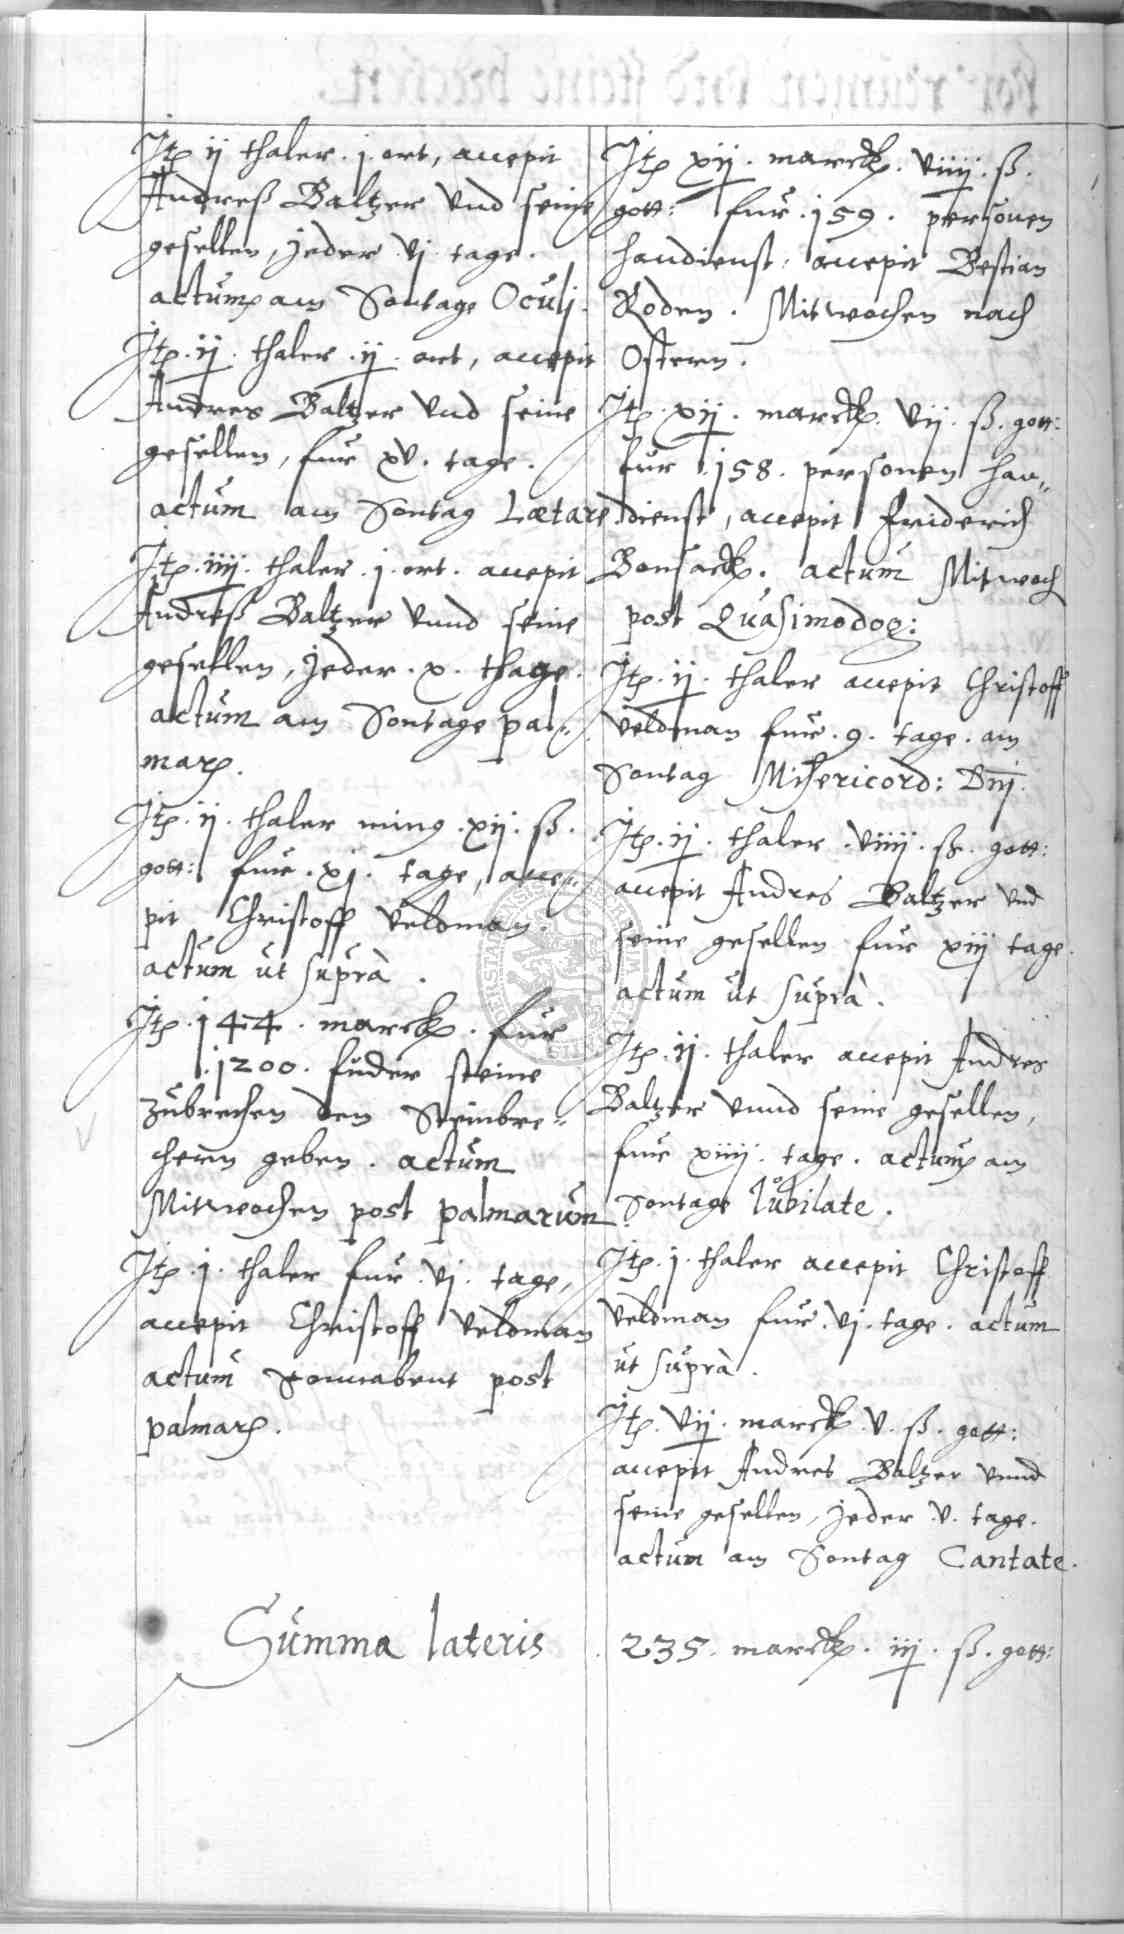 Itẽ ij thaler . j . ort, accepit
Andreß Baltzer vnd seine
gesellen, jeder vj tage .
actum am Sontage Oculj .
Itẽ . ij . thaler . ij . ort, accepit
Andres Baltzer vnd seine
gesellen, fur xv . tage .
actum am Sontag Lætare
Itẽ . iiij . thaler . j . ort . accepit
Andreß Baltzer vnnd seine
gesellen, jeder . x . thage .
actum am Sontage pal=
marũ .
Itẽ . ij . thaler ming . xij . ß .
gott: fur . xj . tage, acce=
pit Christoff Veldman .
actum ut suprà .
Itẽ . 144 . marck . fur
. 1200 . fuder steine
zubrechen den Steinbre=
chern geben . actum
Mitwochen post palmarum
Itẽ . j . thaler fur . vj . tage,
accepit Christoff Veldman
actum Sonnabent post
palmarũ .
Itẽ xij . marck . viiij . ß .
gott: fur . 159 . personen
handienst, accepit Bestian
Roden . Mitwochen nach
Ostern .
Itẽ . xij . marck . vij . ß . gott:
fur . 158 . personen han=
dienst, accepit Friderich
Bonsack . actum Mitwoch
post Quasimodog:
Itẽ . ij . thaler accepit Christoff
Veldman fur . 9 . tage . am
Sontag Misericord: Dnj .
Itẽ . ij . thaler . viiij . ß . gott:
accepit Andres Baltzer vnd
seine gesellen fur xiij tage .
actum ut suprà .
Itẽ . ij . thaler accepit Andres
Baltzer vnnd seine gesellen,
fur xiiij . tage . actum am
Sontage Iubilate .
Itẽ . j . thaler accepit Christoff
Veldman fur . vj . tage . actum
ut suprà .
Itẽ . vij . marck . v . ß . gott:
accepit Andres Baltzer vnnd
seine gesellen, jeder . v . tage .
actum am Sontag Cantate .
Summa lateris . 235 . marck . iij . ß . gott: